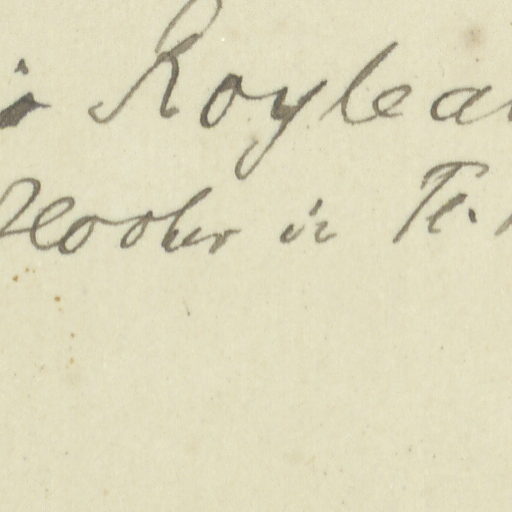 Roylea
Hooker in Fl.